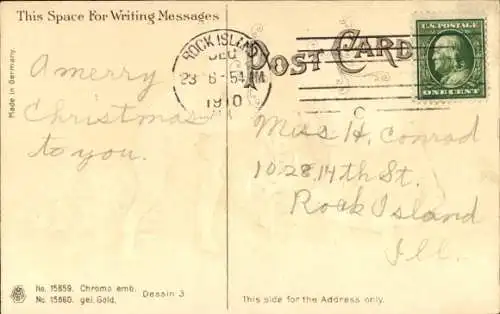 This Space For Writing Messages
POST CARD
U.S. POSTAGE
ONE CENT
ROCK ISLAND
DEC
23
1910
Made in Germany.
A merry
Christmas
to you.
Miss H. Conrad
1028, 14th St.
Rock Island
Ill.
No. 15859. Chromo emb.
No. 15860. gel. Gold.
Dessin 3
This side for the Address only.